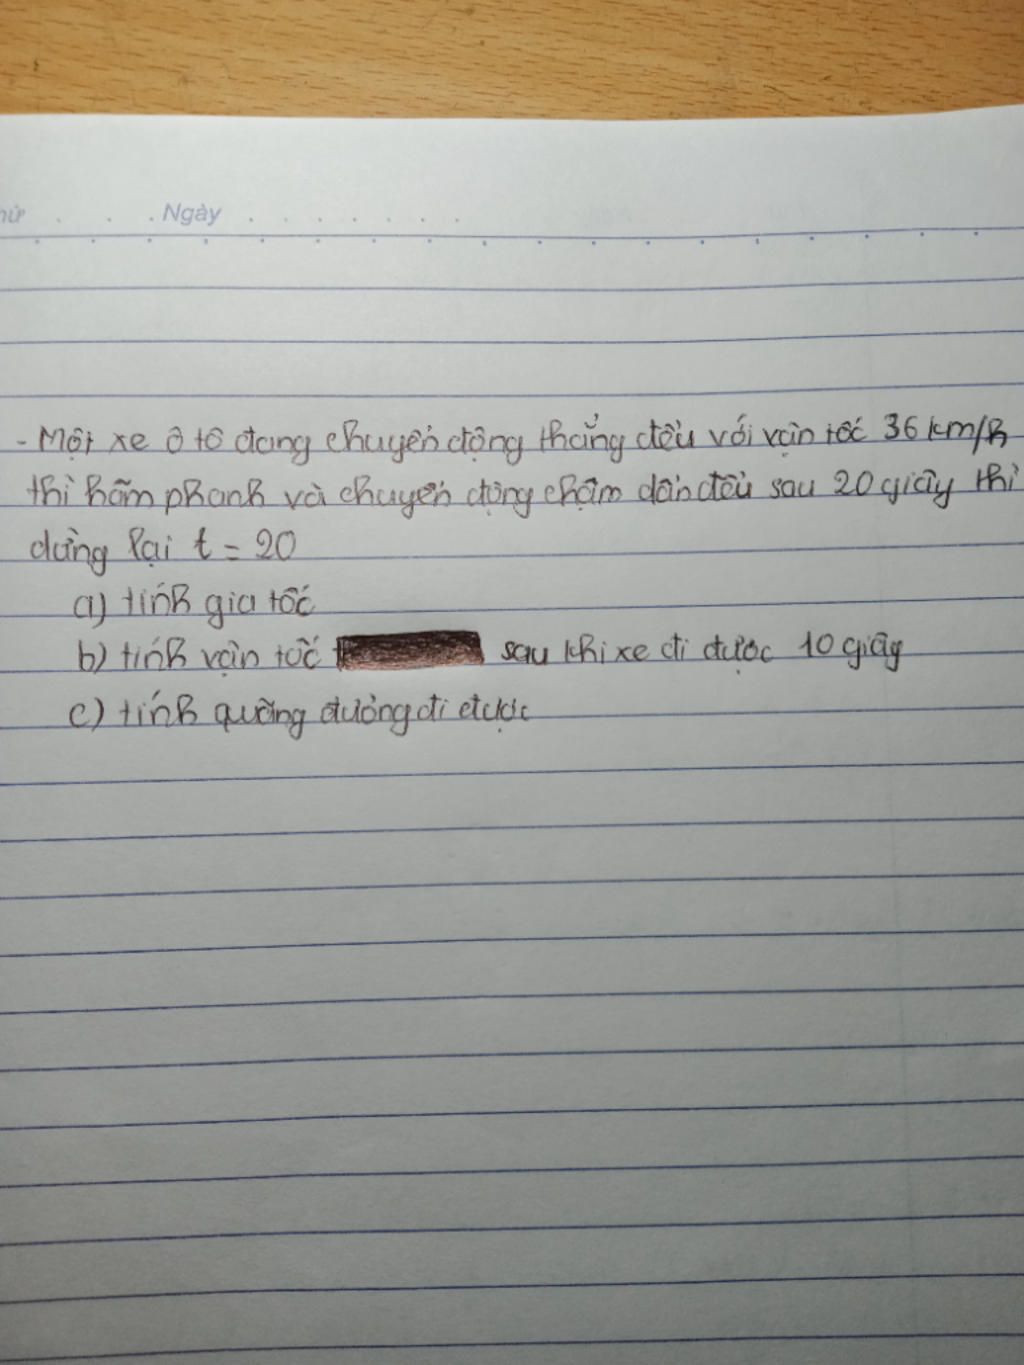 Ngày
- Một xe ô tô đang chuyển động thẳng đều với vận tốc 36 km/h
thì hãm phanh và chuyển động chậm dần đều sau 20 giây thì
dừng lại t = 20
a) tính gia tốc
b) tính vận tốc sau khi xe đi được 10 giây
c) tính quãng đường đi được